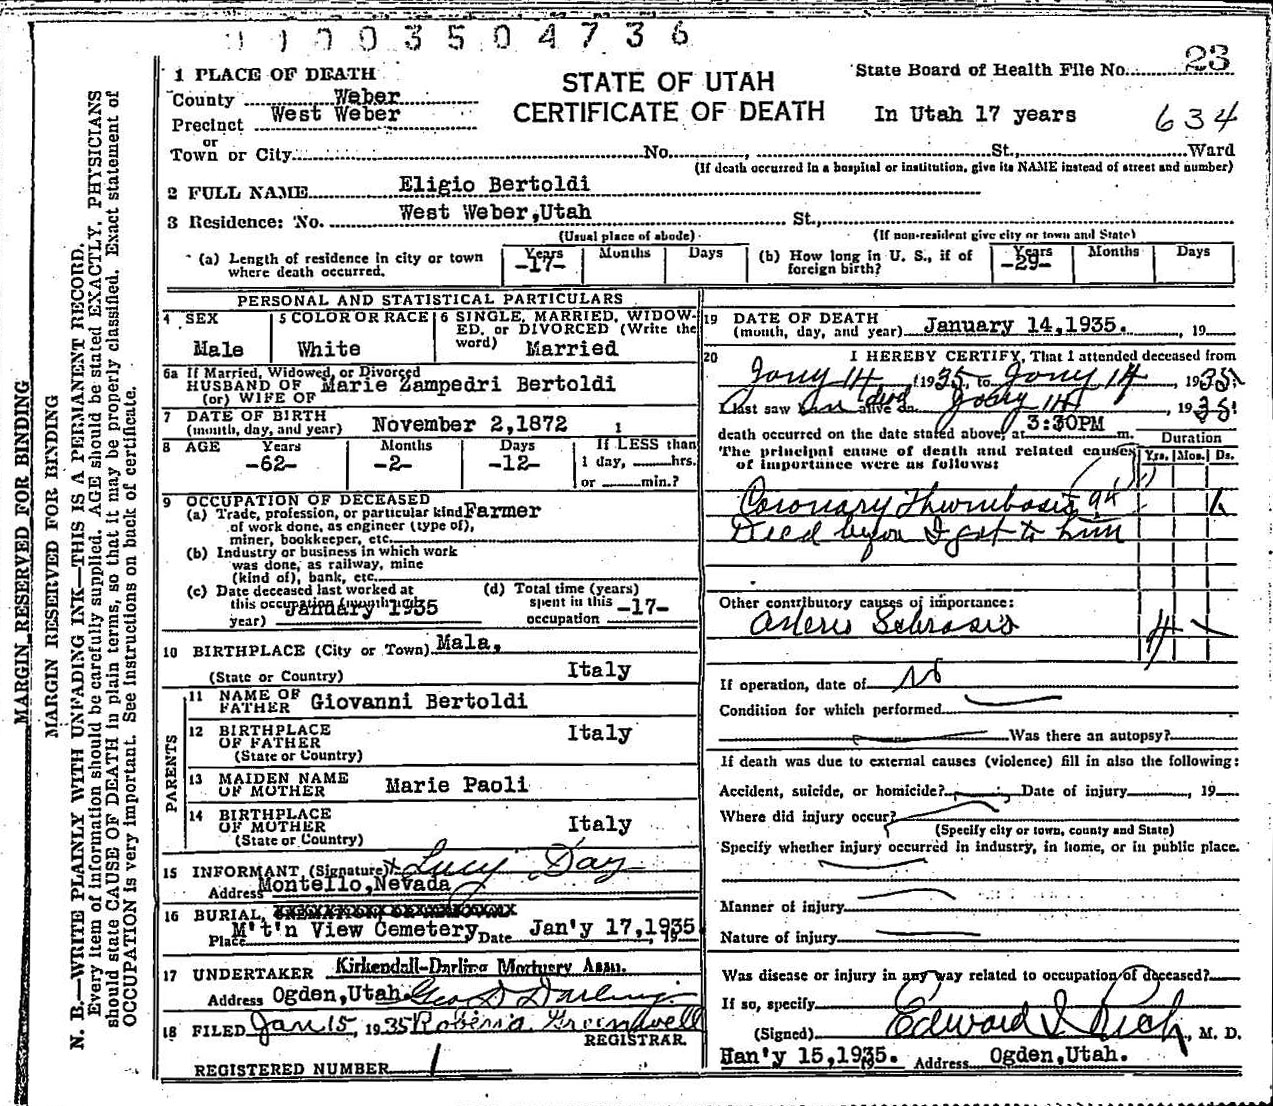 11003504736
MARGIN RESERVED FOR BINDING
MARGIN RESERVED FOR BINDING
N. B.—WRITE PLAINLY WITH UNFADING INK—THIS IS A PERMANENT RECORD.
Every item of information should be carefully supplied. AGE should be stated EXACTLY. PHYSICIANS
should state CAUSE OF DEATH in plain terms, so that it may be properly classified. Exact statement of
OCCUPATION is very important. See instructions on back of certificate.
STATE OF UTAH
CERTIFICATE OF DEATH
State Board of Health File No. 23
In Utah 17 years 634
1 PLACE OF DEATH
County Weber
Precinct West Weber
or
Town or City No. , St., Ward
(If death occurred in a hospital or institution, give its NAME instead of street and number)
2 FULL NAME Eligio Bertoldi
3 Residence: No. West Weber,Utah St.,
(Usual place of abode) (If non-resident give city or town and State)
(a) Length of residence in city or town where death occurred. Years -17- Months Days
(b) How long in U. S., if of foreign birth? Years -29- Months Days
PERSONAL AND STATISTICAL PARTICULARS
4 SEX Male
5 COLOR OR RACE White
6 SINGLE, MARRIED, WIDOWED, or DIVORCED (Write the word) Married
6a If Married, Widowed, or Divorced
HUSBAND OF Marie Zampedri Bertoldi
(or) WIFE OF
7 DATE OF BIRTH
(month, day, and year) November 2,1872
8 AGE Years -62- Months -2- Days -12-
If LESS than
1 day, hrs.
or min.?
9 OCCUPATION OF DECEASED
(a) Trade, profession, or particular kind Farmer
of work done, as engineer (type of),
miner, bookkeeper, etc.
(b) Industry or business in which work
was done, as railway, mine
(kind of), bank, etc.
(c) Date deceased last worked at
this occupation (month and
year) January 1935
(d) Total time (years)
spent in this -17-
occupation
10 BIRTHPLACE (City or Town) Mala,
(State or Country) Italy
PARENTS
11 NAME OF
FATHER Giovanni Bertoldi
12 BIRTHPLACE
OF FATHER Italy
(State or Country)
13 MAIDEN NAME
OF MOTHER Marie Paoli
14 BIRTHPLACE
OF MOTHER Italy
(State or Country)
15 INFORMANT (Signature) x Lucy Day
Address Montello,Nevada
16 BURIAL,
Place M't'n View Cemetery Date Jan'y 17,1935, 19
17 UNDERTAKER Kirkendall-Darling Mortuary Assn.
Address Ogden,Utah. Geo D Darling
18 FILED Jan 15, 1935 Roberta Greenwell
REGISTRAR.
REGISTERED NUMBER 1
19 DATE OF DEATH
(month, day, and year) January 14,1935. , 19
20 I HEREBY CERTIFY, That I attended deceased from
Jany 14, 1935, to Jany 14, 1935.
I last saw him alive on died Jany 14, 1935.
death occurred on the date stated above, at 3:30PM m.
The principal cause of death and related causes
of importance were as follows:
Duration
Yrs. Mos. Ds.
Coronary Thrombosis
Died before I got to him
Other contributory causes of importance:
Arterio Sclerosis 4
If operation, date of No
Condition for which performed
Was there an autopsy?
If death was due to external causes (violence) fill in also the following:
Accident, suicide, or homicide? Date of injury , 19
Where did injury occur?
(Specify city or town, county and State)
Specify whether injury occurred in industry, in home, or in public place.
Manner of injury
Nature of injury
Was disease or injury in any way related to occupation of deceased?
If so, specify
(Signed) Edward I Rich, M. D.
Han'y 15,1935. 19 Address Ogden,Utah.